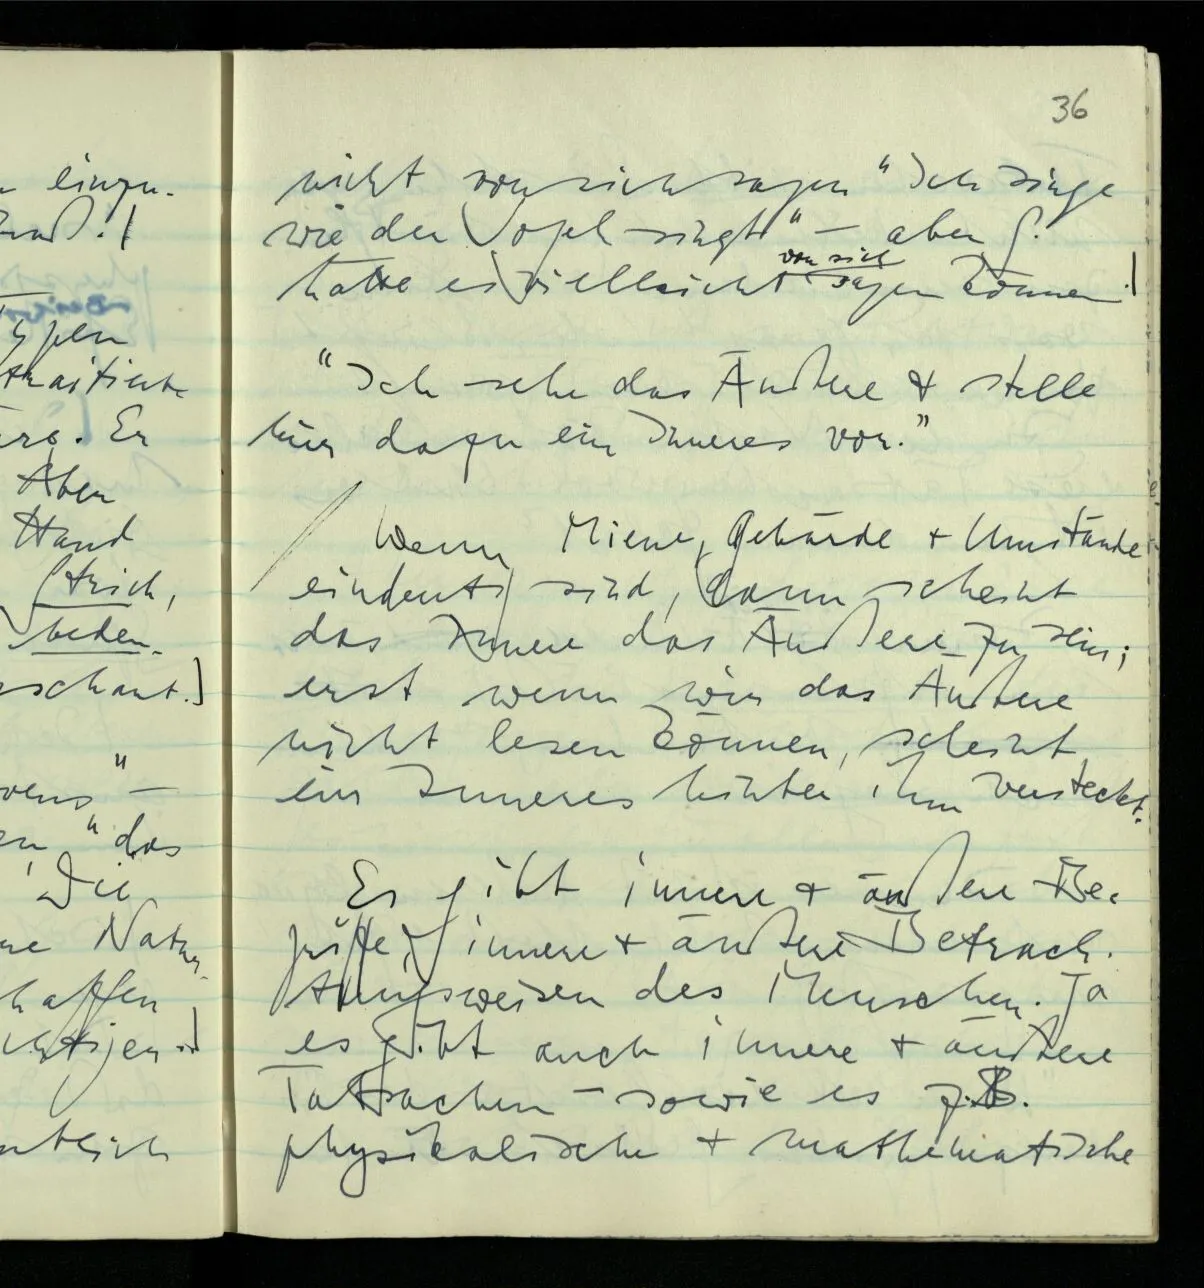 einzu-
Typen
Er
Aber
Hand
Strich,
beden.
schaut.]
"das
Die
Natur-
haffen
36
nicht von sich sagen "Ich singe
wie der Vogel singt" – aber S.
hätte es vielleicht von sich sagen können.]
"Ich sehe das Äußere & stelle
mir dazu ein Inneres vor."
/ Wenn Miene, Gebärde + Umstände
eindeutig sind, dann scheint
das Innere das Äußere zu sein;
erst wenn wir das Äußere
nicht lesen können, scheint
ein Inneres hinter ihm versteckt.
Es gibt innere + äußere Be-
griffe, innere + äußere Betrach-
tungsweisen des Menschen. Ja
es gibt auch innere + äußere
Tatsachen – sowie es z.B.
physikalische + mathematische